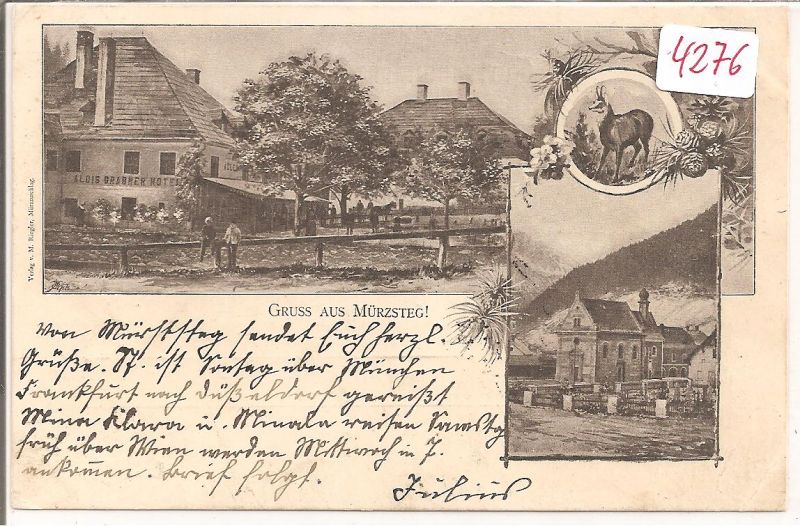 4276
ALOIS GRABNER HOTEL
Verlag v. M. Riegler, Mürzzuschlag.
GRUSS AUS MÜRZSTEG!
Von Mürzsteg sendet Euch herzl.
Grüße. St. ist Sontag über München
Frankfurt nach Düßeldorf gereißt
Mina Klara u. Minala reisen Samstg
früh über Wien werden Mittwoch in J.
ankommen. Brief folgt.
Julius